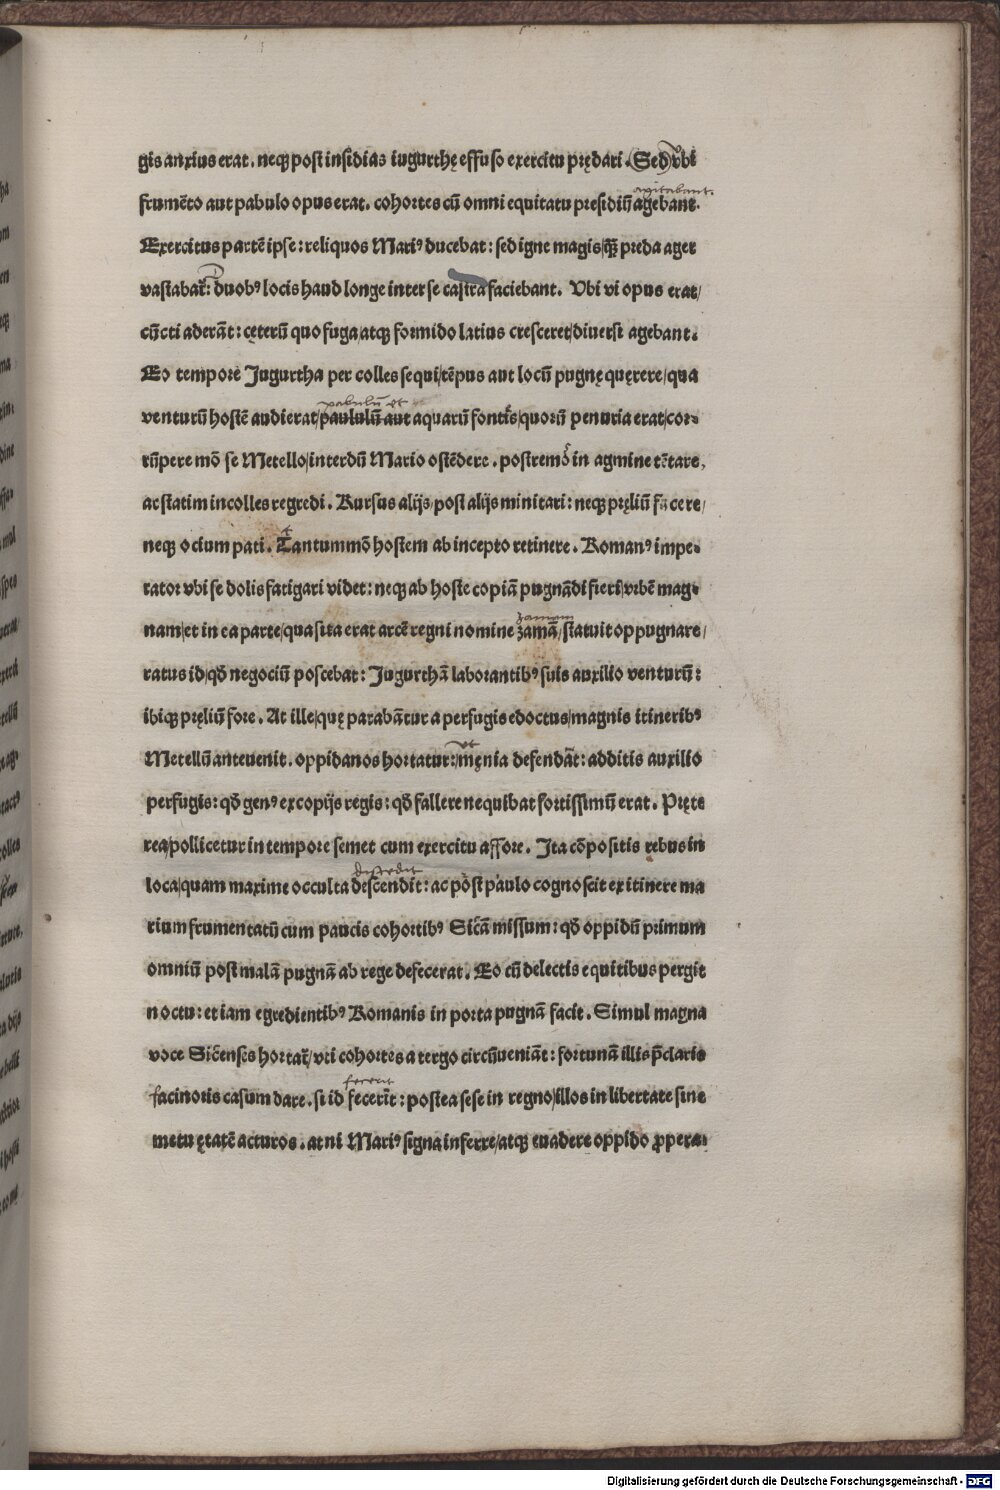 gis anxius erat. neq̃ post insidias iugurthę effuso exercitu prędari. Sed vbi
agitabant.
frumēto aut pabulo opus erat. cohortes cū omni equitatu presidiū agebant.
Exercitus partē ipse: reliquos Mariꝰ ducebat: sed igne magis/q̃ꝫ preda ager
vastabat᷑: duobꝰ locis haud longe inter se castra faciebant. Vbi vi opus erat/
cūcti aderāt: cęterū quo fuga/atqꝫ formido latius cresceret/diuersi agebant.
Eo tempore Jugurtha per colles sequi/tēpus aut locū pugnę quęrere/qua
pabulū et
venturū hostē audierat/paululū aut aquarū fontis/quorū penuria erat/cor-
rūpere mō se Metello/interdū Mario ostēdere. postremo in agmine tētare,
ac statim in colles regredi. Rursus alijs/post alijs minitari: neqꝫ pręliū facere/
t
neqꝫ ocium pati. Tantummō hostem ab incepto retinere. Romanꝰ impe-
rator vbi se dolis fatigari videt: neqꝫ ab hoste copiā pugnādi fieri/vrbē mag-
zamam
nam/et in ea parte/qua sita erat arcē regni nomine zamā/statuit oppugnare/
ratus id/qđ negociū poscebat: Jugurthā laborantibꝰ suis auxilio venturū:
ibiqꝫ pręliū fore. At ille/quę parabātur a perfugis edoctus/magnis itineribꝰ
vt
Metellū anteuenit. oppidanos hortatur: męnia defendāt: additis auxilio
perfugis: qđ genꝰ ex copijs regis: qđ fallere nequibat fortissimū erat. Pręte
rea/pollicetur in tempore semet cum exercitu affore. Ita cōpositis rebus in
discedit
loca/quam maxime occulta descendit: ac post paulo cognoscit ex itinere ma
rium frumentatū cum paucis cohortibꝰ Sicā missum: qđ oppidū primum
omniū post malā pugnā ab rege defecerat. Eo cū delectis equitibus pergit
noctu: et iam egredientibꝰ Romanis in porta pugnā facit. Simul magna
voce Sicenses hortat᷑/vti cohortes a tergo circūueniāt: fortunā illis p̄clari
fecerit
facinoris casum dare. si id fecerīt: postea sese in regno/illos in libertate sine
metu ętatē acturos. at ni Mariꝰ signa inferre/atqꝫ euadere oppido ꝓpera-
Digitalisierung gefördert durch die Deutsche Forschungsgemeinschaft - DFG